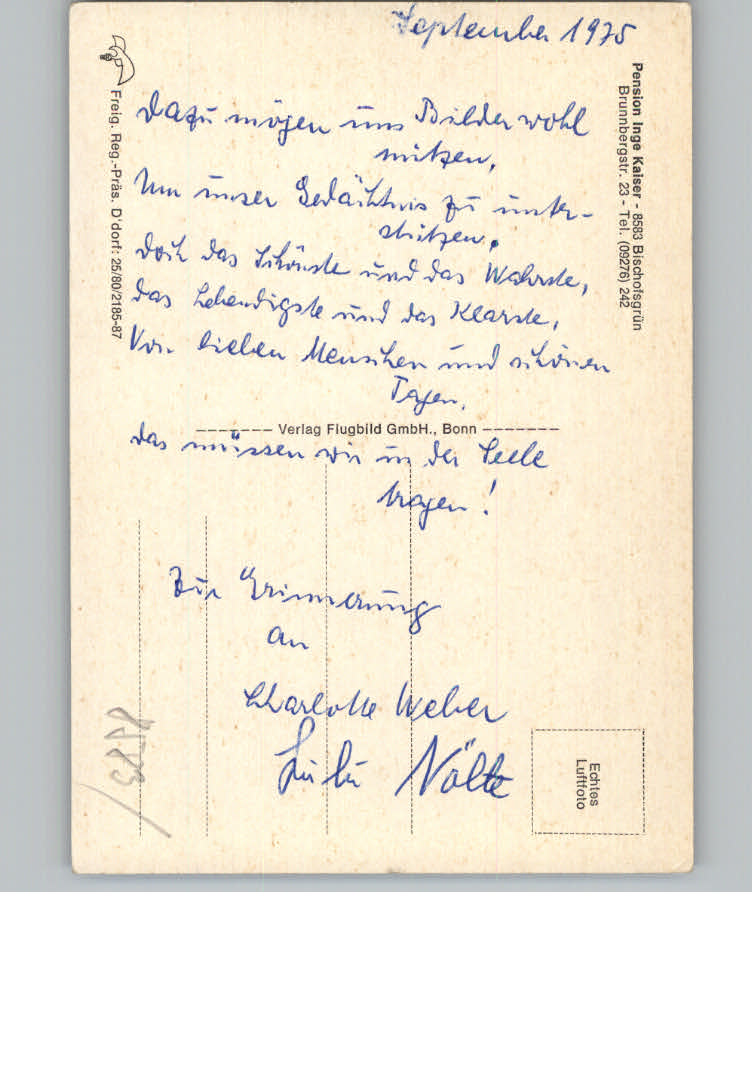 September 1975
Dazu mögen uns Bilder wohl
nützen,
Um unser Gedächtnis zu unter-
stützen.
Doch das Schönste und das Wahrste,
das Lebendigste und das Klarste,
Von lieben Menschen und schönen
Tagen,
das müssen wir in der Seele
tragen!
Zur Erinnerung
an
Charlotte Weber
Lulu Nölte
Pension Inge Kaiser - 8583 Bischofsgrün
Brunnbergstr. 23 - Tel. (09276) 242
Freig. Reg.-Präs. D'dorf: 25/80/2185-87
Verlag Flugbild GmbH., Bonn
Echtes
Luftfoto
8583/